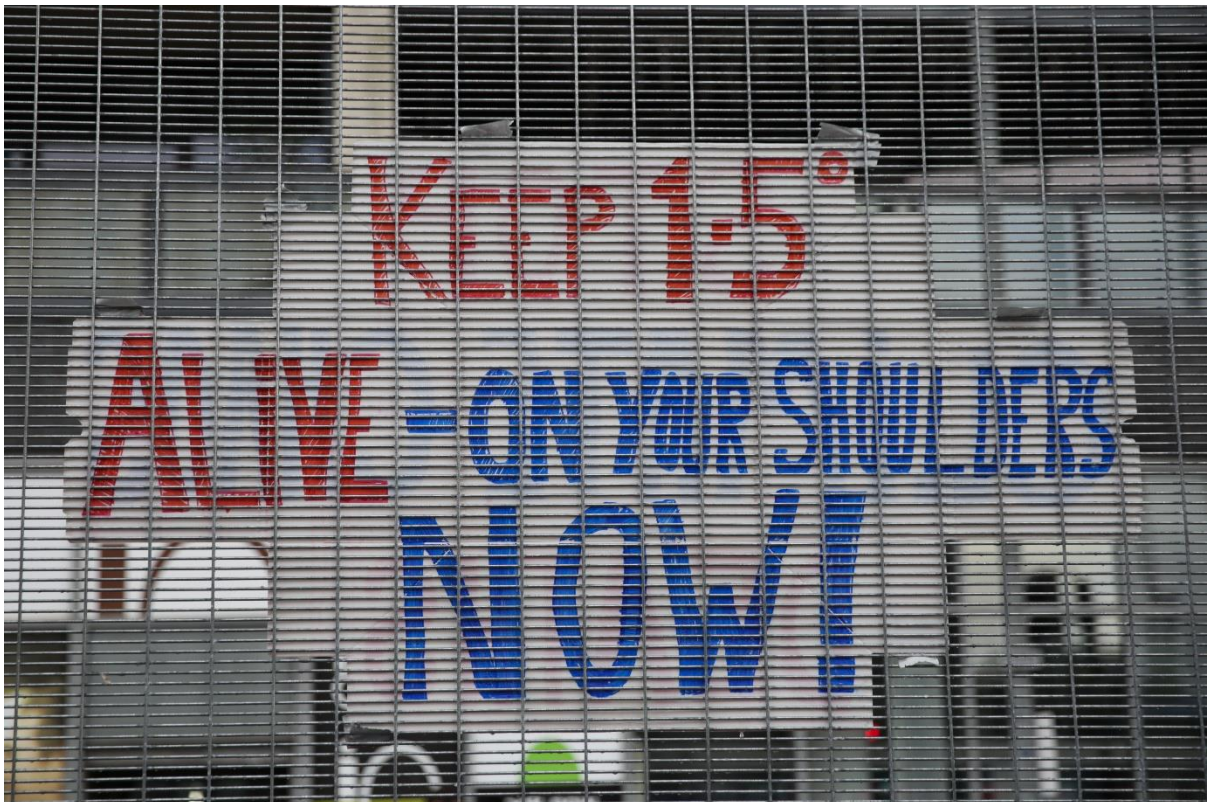 KEEP 1.5°
ALIVE - ON YOUR SHOULDERS
NOW!